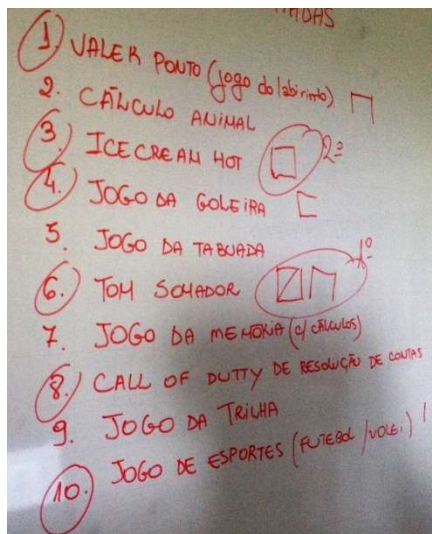 1. VALER PONTO (jogo do labirinto)
2. CÁLCULO ANIMAL
3. ICE CREAM HOT 2º
4. JOGO DA GOLEIRA
5. JOGO DA TABUADA
6. TOM SOMADOR 1º
7. JOGO DA MEMÓRIA (c/ cálculos)
8. CALL OF DUTTY DE RESOLUÇÃO DE CONTAS
9. JOGO DA TRILHA
10. JOGO DE ESPORTES (FUTEBOL / VOLEI)